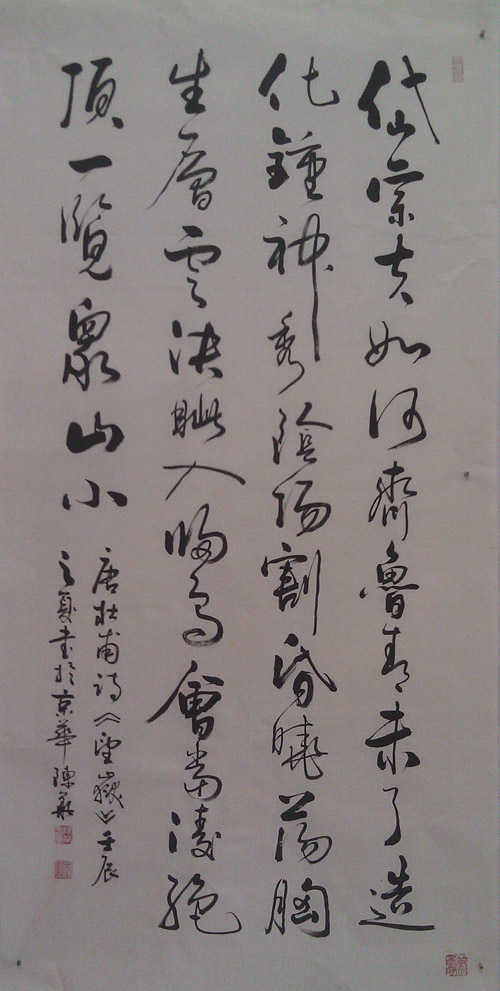 岱宗夫如何齊魯青未了造
化鍾神秀陰陽割昏曉蕩胸
生層雲決眦入歸鳥會當淩絕
頂一覽眾山小
唐杜甫詩《望嶽》壬辰
之夏書於京華陳